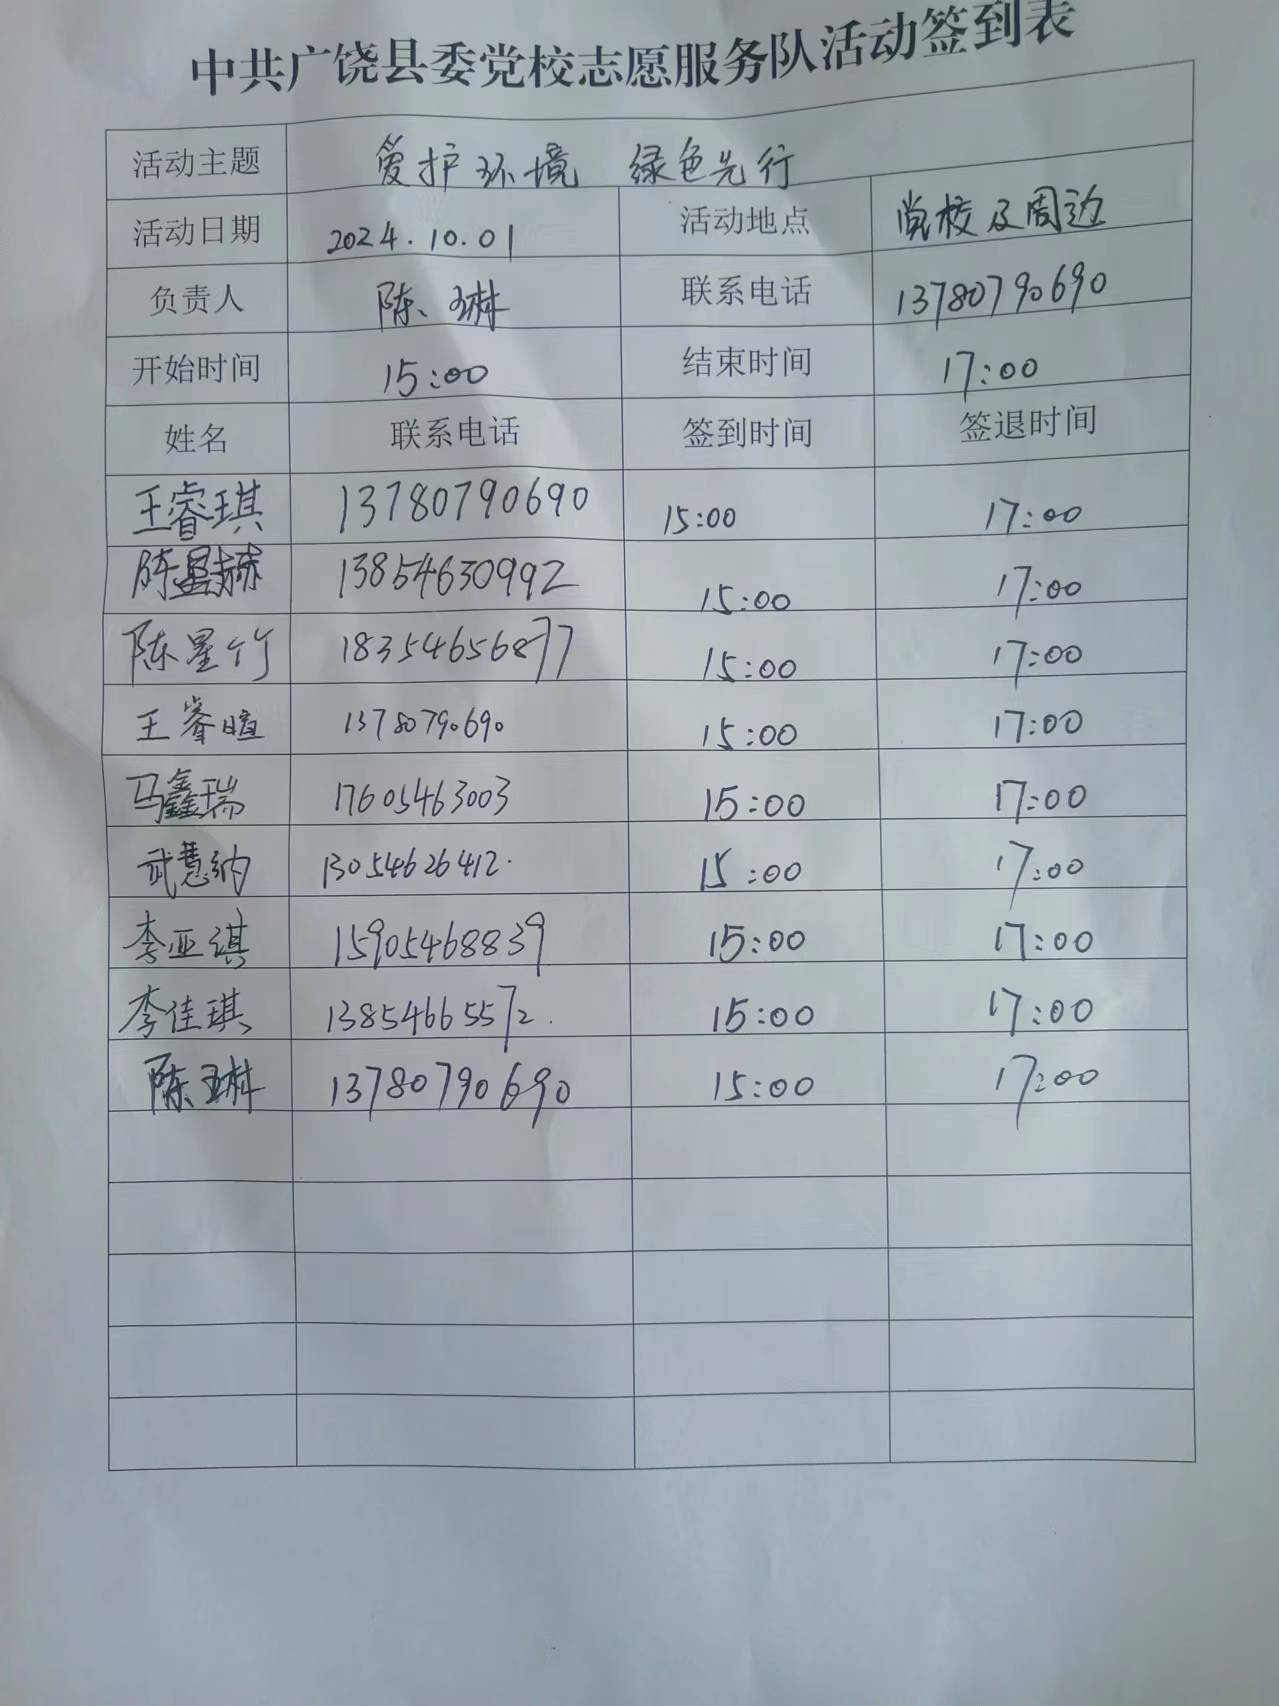 中共广饶县委党校志愿服务队活动签到表
活动主题 爱护环境 绿色先行
活动日期 2024.10.01 活动地点 党校及周边
负责人 陈玉琳 联系电话 13780790690
开始时间 15:00 结束时间 17:00
姓名 联系电话 签到时间 签退时间
王睿琪 13780790690 15:00 17:00
陈 13854630992 15:00 17:00
陈星竹 18354656877 15:00 17:00
王睿暄 13780790690 15:00 17:00
马鑫瑞 17605463003 15:00 17:00
武慧纳 13054626412. 15:00 17:00
李亚淇 15905468839 15:00 17:00
李佳琪 13854665572. 15:00 17:00
陈玉琳 13780790690 15:00 17:00